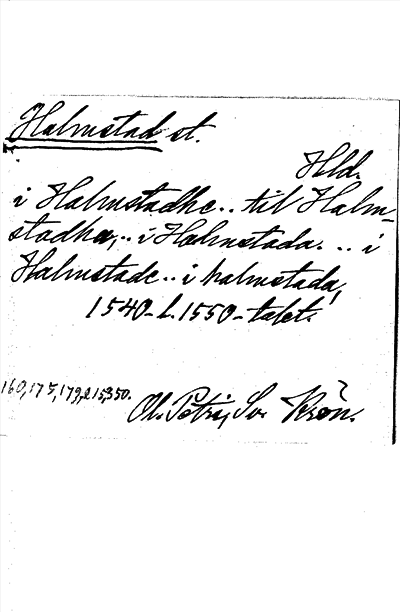 Halmstad st.
Hld.
i Halmstadhe .. til Halm-
stadha, .. i Halmstada. .. i
Halmstade .. i halmstada,
1540-t. 1550-talet.
160, 175, 179, 215, 350.
Ol. Petri, Sv. Krön.